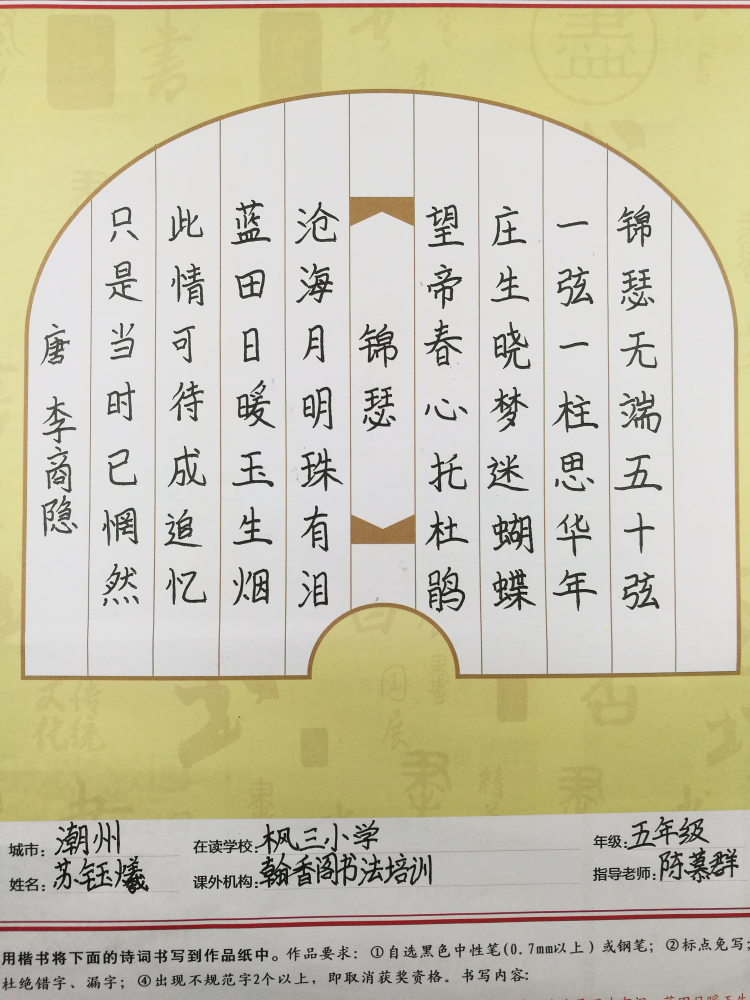 锦瑟无端五十弦
一弦一柱思华年
庄生晓梦迷蝴蝶
望帝春心托杜鹃
锦瑟
沧海月明珠有泪
蓝田日暖玉生烟
此情可待成追忆
只是当时已惘然
唐 李商隐
城市：潮州 在读学校：枫三小学 年级：五年级
姓名：苏钰燨 课外机构：翰香阁书法培训 指导老师：陈慕群
用楷书将下面的诗词书写到作品纸中。作品要求：①自选黑色中性笔(0.7mm以上)或钢笔；②标点免写；
杜绝错字、漏字；④出现不规范字2个以上，即取消获奖资格。书写内容：